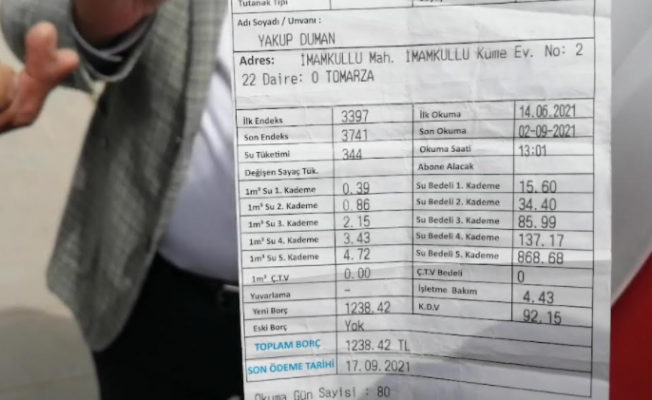 Tutanak Tipi
Adı Soyadı / Unvanı :
YAKUP DUMAN
Adres: İMAMKULLU Mah. İMAMKULLU Küme Ev. No: 2
22 Daire: 0 TOMARZA
İlk Endeks 3397 İlk Okuma 14.06.2021
Son Endeks 3741 Son Okuma 02-09-2021
Su Tüketimi 344 Okuma Saati 13:01
Değişen Sayaç Tük. Abone Alacak
1m³ Su 1. Kademe 0.39 Su Bedeli 1. Kademe 15.60
1m³ Su 2. Kademe 0.86 Su Bedeli 2. Kademe 34.40
1m³ Su 3. Kademe 2.15 Su Bedeli 3. Kademe 85.99
1m³ Su 4. Kademe 3.43 Su Bedeli 4. Kademe 137.17
1m³ Su 5. Kademe 4.72 Su Bedeli 5. Kademe 868.68
1m³ Ç.T.V 0.00 Ç.T.V Bedeli 0
Yuvarlama - İşletme Bakım 4.43
Yeni Borç 1238.42 K.D.V 92.15
Eski Borç Yok
TOPLAM BORÇ 1238.42 TL
SON ÖDEME TARİHİ 17.09.2021
Okuma Gün Sayısı : 80